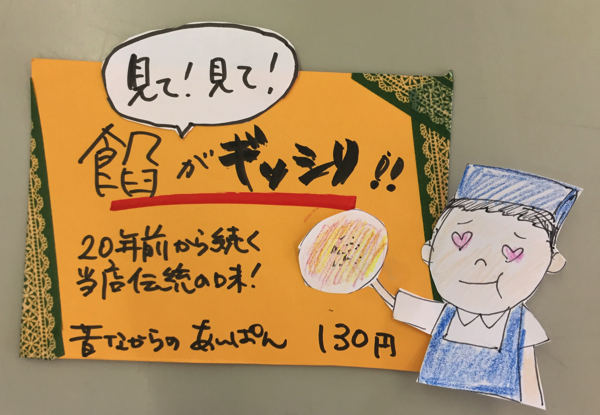 見て！見て！
餡がギッシリ!!
20年前から続く
当店伝統の味！
昔ながらのあんぱん 130円